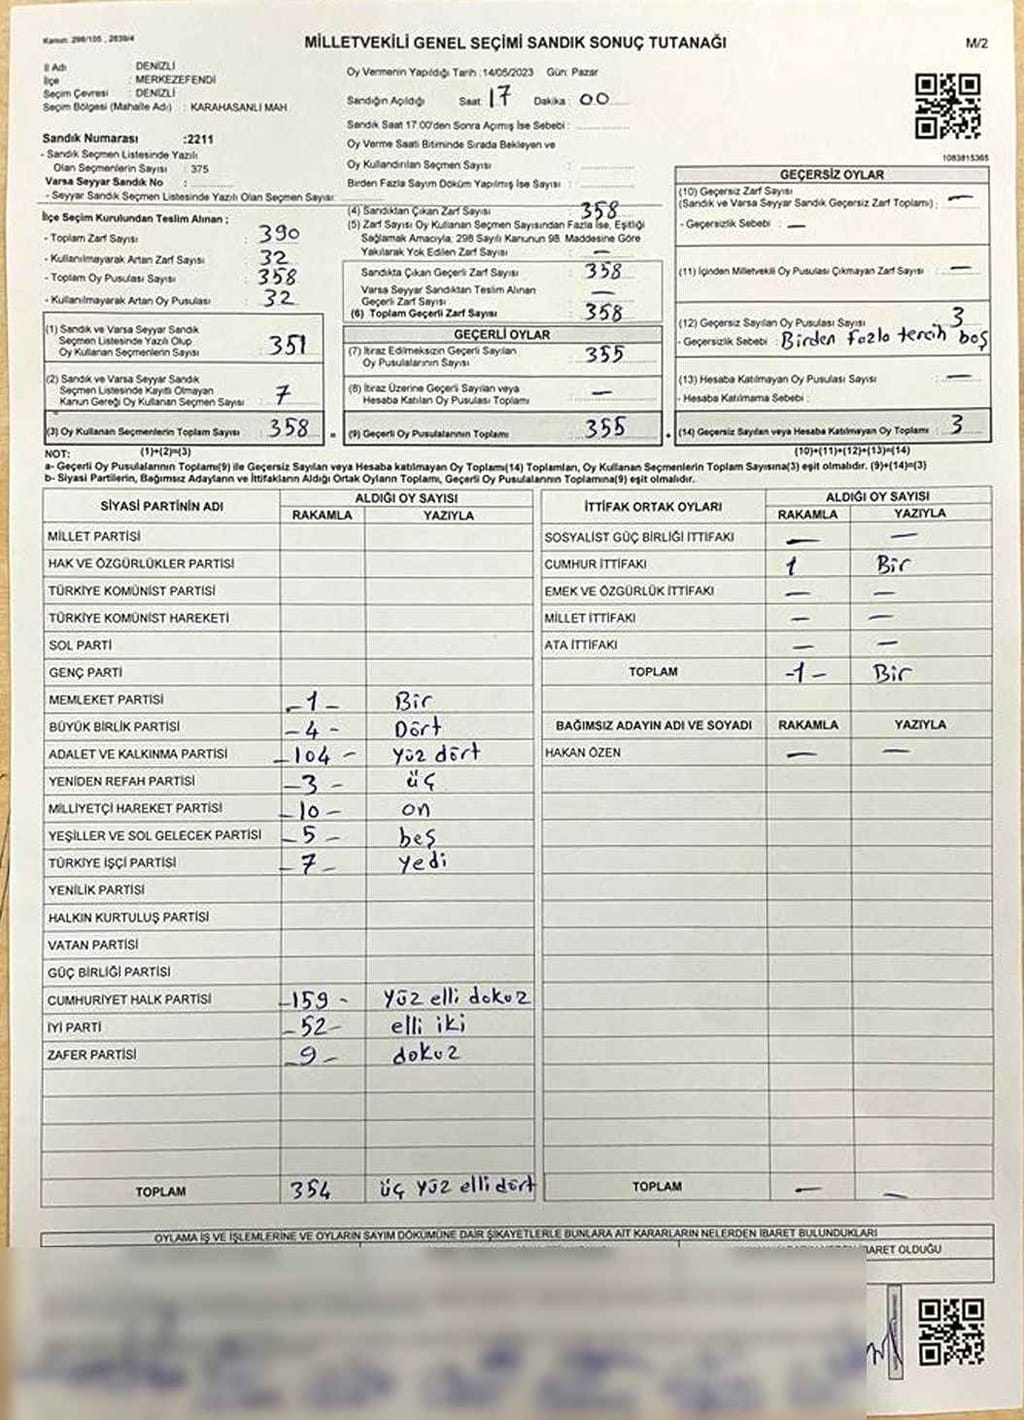 Kanun: 298/105 , 2839/4
MİLLETVEKİLİ GENEL SEÇİMİ SANDIK SONUÇ TUTANAĞI
M/2
İl Adı : DENİZLİ
İlçe : MERKEZEFENDİ
Seçim Çevresi : DENİZLİ
Seçim Bölgesi (Mahalle Adı) : KARAHASANLI MAH.
Sandık Numarası :2211
- Sandık Seçmen Listesinde Yazılı
Olan Seçmenlerin Sayısı : 375
Varsa Seyyar Sandık No :
- Seyyar Sandık Seçmen Listesinde Yazılı Olan Seçmen Sayısı:
Oy Vermenin Yapıldığı Tarih :14/05/2023 Gün: Pazar
Sandığın Açıldığı Saat 17 Dakika : 00
Sandık Saat 17:00'den Sonra Açımış İse Sebebi :
Oy Verme Saati Bitiminde Sırada Bekleyen ve
Oy Kullandırılan Seçmen Sayısı :
Birden Fazla Sayım Döküm Yapılmış İse Sayısı :
1083815365
İlçe Seçim Kurulundan Teslim Alınan ;
- Toplam Zarf Sayısı : 390
- Kullanılmayarak Artan Zarf Sayısı : 32
- Toplam Oy Pusulası Sayısı : 358
- Kullanılmayarak Artan Oy Pusulası : 32
(1) Sandık ve Varsa Seyyar Sandık
Seçmen Listesinde Yazılı Olup
Oy Kullanan Seçmenlerin Sayısı : 351
(2) Sandık ve Varsa Seyyar Sandık
Seçmen Listesinde Kayıtlı Olmayan
Kanun Gereği Oy Kullanan Seçmen Sayısı : 7
(3) Oy Kullanan Seçmenlerin Toplam Sayısı : 358
(4) Sandıktan Çıkan Zarf Sayısı : 358
(5) Zarf Sayısı Oy Kullanan Seçmen Sayısından Fazla İse, Eşitliği
Sağlamak Amacıyla, 298 Sayılı Kanunun 98. Maddesine Göre
Yakılarak Yok Edilen Zarf Sayısı : —
Sandıkta Çıkan Geçerli Zarf Sayısı : 358
Varsa Seyyar Sandıktan Teslim Alınan
Geçerli Zarf Sayısı : —
(6) Toplam Geçerli Zarf Sayısı : 358
GEÇERLİ OYLAR
(7) İtiraz Edilmeksizin Geçerli Sayılan
Oy Pusulalarının Sayısı : 355
(8) İtiraz Üzerine Geçerli Sayılan veya
Hesaba Katılan Oy Pusulası Toplamı : —
= (9) Geçerli Oy Pusulalarının Toplamı : 355
GEÇERSİZ OYLAR
(10) Geçersiz Zarf Sayısı
(Sandık ve Varsa Seyyar Sandık Geçersiz Zarf Toplamı) : —
- Geçersizlik Sebebi : —
(11) İçinden Milletvekili Oy Pusulası Çıkmayan Zarf Sayısı : —
(12) Geçersiz Sayılan Oy Pusulası Sayısı : 3
- Geçersizlik Sebebi : Birden fazla tercih boş
(13) Hesaba Katılmayan Oy Pusulası Sayısı : —
- Hesaba Katılmama Sebebi :
+ (14) Geçersiz Sayılan veya Hesaba Katılmayan Oy Toplamı : 3
NOT: (1)+(2)=(3)
(10)+(11)+(12)+(13)=(14)
a- Geçerli Oy Pusulalarının Toplamı(9) ile Geçersiz Sayılan veya Hesaba katılmayan Oy Toplamı(14) Toplamları, Oy Kullanan Seçmenlerin Toplam Sayısına(3) eşit olmalıdır. (9)+(14)=(3)
b- Siyasi Partilerin, Bağımsız Adayların ve İttifakların Aldığı Ortak Oyların Toplamı, Geçerli Oy Pusulalarının Toplamına(9) eşit olmalıdır.
SİYASİ PARTİNİN ADI ALDIĞI OY SAYISI
RAKAMLA YAZIYLA
MİLLET PARTİSİ
HAK VE ÖZGÜRLÜKLER PARTİSİ
TÜRKİYE KOMÜNİST PARTİSİ
TÜRKİYE KOMÜNİST HAREKETİ
SOL PARTİ
GENÇ PARTİ
MEMLEKET PARTİSİ -1- Bir
BÜYÜK BİRLİK PARTİSİ -4- Dört
ADALET VE KALKINMA PARTİSİ -104- Yüz dört
YENİDEN REFAH PARTİSİ -3- üç
MİLLİYETÇİ HAREKET PARTİSİ -10- on
YEŞİLLER VE SOL GELECEK PARTİSİ -5- beş
TÜRKİYE İŞÇİ PARTİSİ -7- yedi
YENİLİK PARTİSİ
HALKIN KURTULUŞ PARTİSİ
VATAN PARTİSİ
GÜÇ BİRLİĞİ PARTİSİ
CUMHURİYET HALK PARTİSİ -159- Yüz elli dokuz
İYİ PARTİ -52- elli iki
ZAFER PARTİSİ -9- dokuz
TOPLAM 354 üç yüz elli dört
İTTİFAK ORTAK OYLARI ALDIĞI OY SAYISI
RAKAMLA YAZIYLA
SOSYALİST GÜÇ BİRLİĞİ İTTİFAKI — —
CUMHUR İTTİFAKI 1 Bir
EMEK VE ÖZGÜRLÜK İTTİFAKI — —
MİLLET İTTİFAKI — —
ATA İTTİFAKI — —
TOPLAM -1- Bir
BAĞIMSIZ ADAYIN ADI VE SOYADI RAKAMLA YAZIYLA
HAKAN ÖZEN — —
TOPLAM — —
OYLAMA İŞ VE İŞLEMLERİNE VE OYLARIN SAYIM DÖKÜMÜNE DAİR ŞİKAYETLERLE BUNLARA AİT KARARLARIN NELERDEN İBARET BULUNDUKLARI
İBARET OLDUĞU